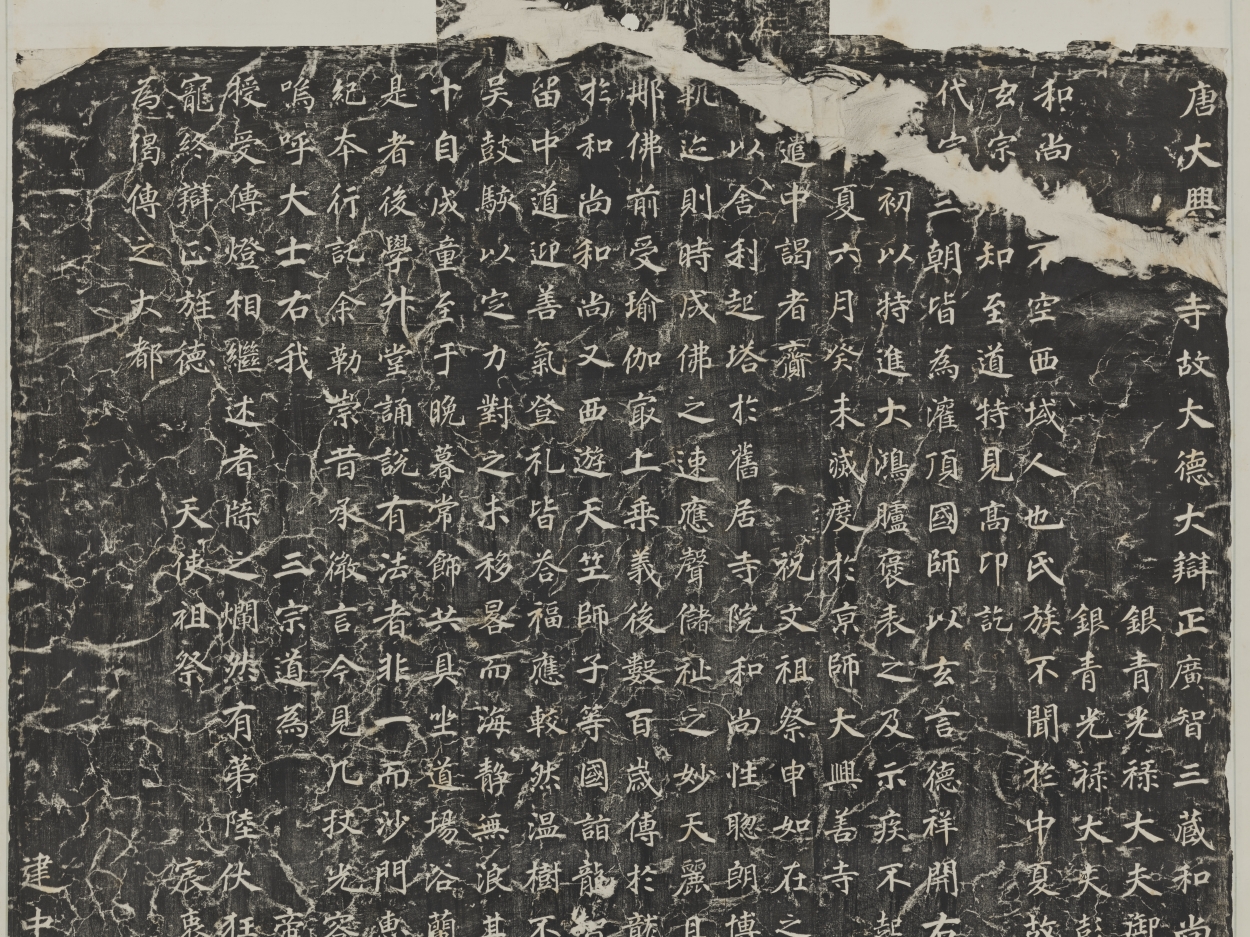 唐大興寺故大德大辯正廣智三藏和尚
銀青光祿大夫御
銀青光祿大夫彭
和尚不空西域人也氏族不聞於中夏故
玄宗知至道特見高卬訖
代宗三朝皆為灌頂國師以玄言德祥開右
初以特進大鴻臚褒表之及示疾不起
夏六月癸未滅度於京師大興善寺
遣中謁者齎祝文祖祭申如在之
以舍利起塔於舊居寺院和尚性聰朗博
軌迹則時成佛之速應聲儲祉之妙天麗且
那佛前受瑜伽最上乘義後數百歲傳於龍
於和尚和尚又西遊天竺師子等國詣龍智
留中道迎善氣登礼皆荅福應較然温樹不
吴鼓駭以定力對之未移晷而海静無浪其
十自成童至于晚暮常飾共具坐道場浴蘭
是者後學升堂誦說有法者非一而沙門惠
紀本行託余勒崇昔承微言今見几杖光容
嗚呼大士右我三宗道為帝
受傳燈相繼述者牒之爛然有第陸伏狂
寵終辯正旌德天使祖祭宸衷
為偈傳之大都
建中